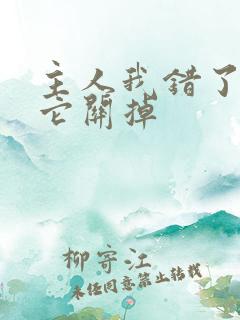 主人我错了
它關掉
柳寄江
未经同意禁止转载